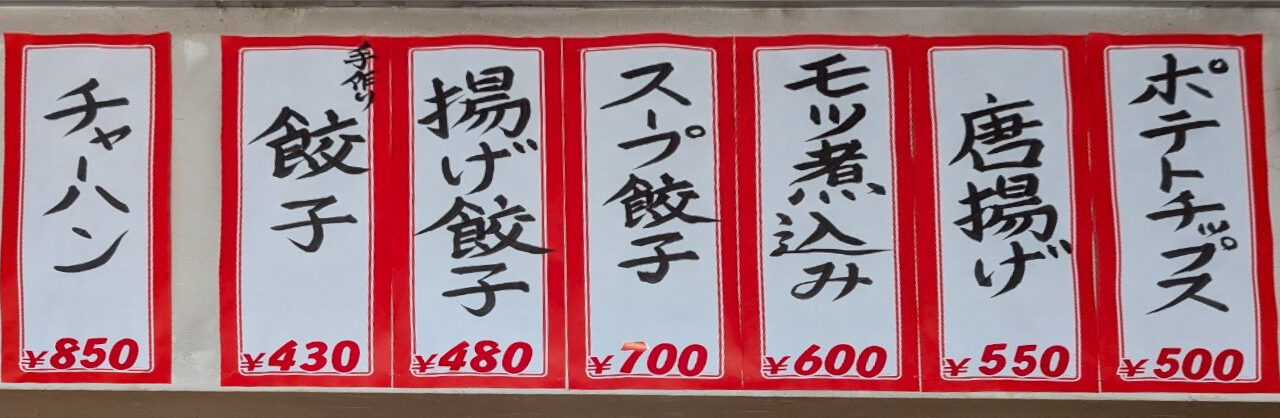 チャーハン
¥850
手作り
餃子
¥430
揚げ餃子
¥480
スープ餃子
¥700
モツ煮込み
¥600
唐揚げ
¥550
ポテトチップス
¥500